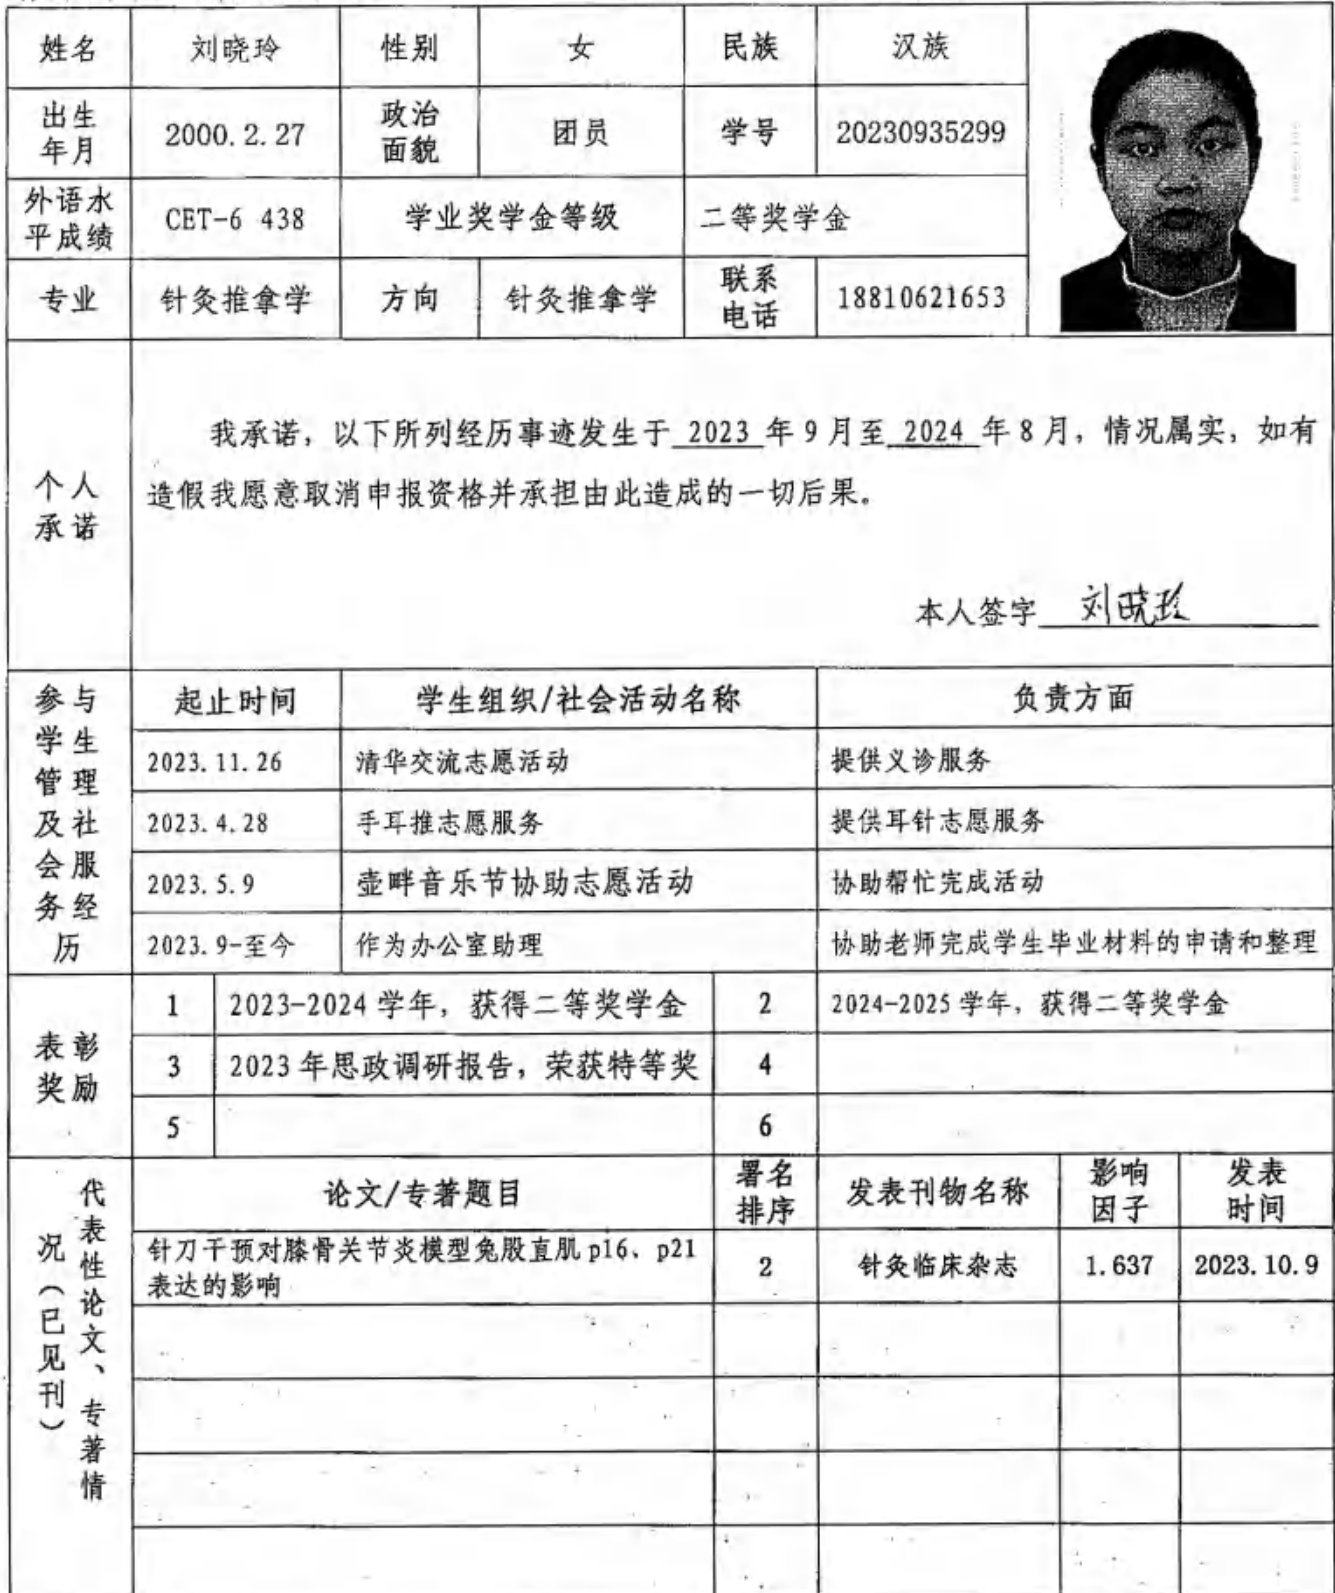 姓名 刘晓玲 性别 女 民族 汉族
出生年月 2000.2.27 政治面貌 团员 学号 20230935299
外语水平成绩 CET-6 438 学业奖学金等级 二等奖学金
专业 针灸推拿学 方向 针灸推拿学 联系电话 18810621653
个人承诺
我承诺，以下所列经历事迹发生于 2023 年9月至 2024 年8月，情况属实，如有
造假我愿意取消申报资格并承担由此造成的一切后果。
本人签字 刘晓玲
参与学生管理及社会服务经历
起止时间 学生组织/社会活动名称 负责方面
2023.11.26 清华交流志愿活动 提供义诊服务
2023.4.28 手耳推志愿服务 提供耳针志愿服务
2023.5.9 壶畔音乐节协助志愿活动 协助帮忙完成活动
2023.9-至今 作为办公室助理 协助老师完成学生毕业材料的申请和整理
表彰奖励
1 2023-2024学年，获得二等奖学金 2 2024-2025学年，获得二等奖学金
3 2023年思政调研报告，荣获特等奖 4
5 6
代表性论文、专著情况（已见刊）
论文/专著题目 署名排序 发表刊物名称 影响因子 发表时间
针刀干预对膝骨关节炎模型兔股直肌p16、p21
表达的影响 2 针灸临床杂志 1.637 2023.10.9